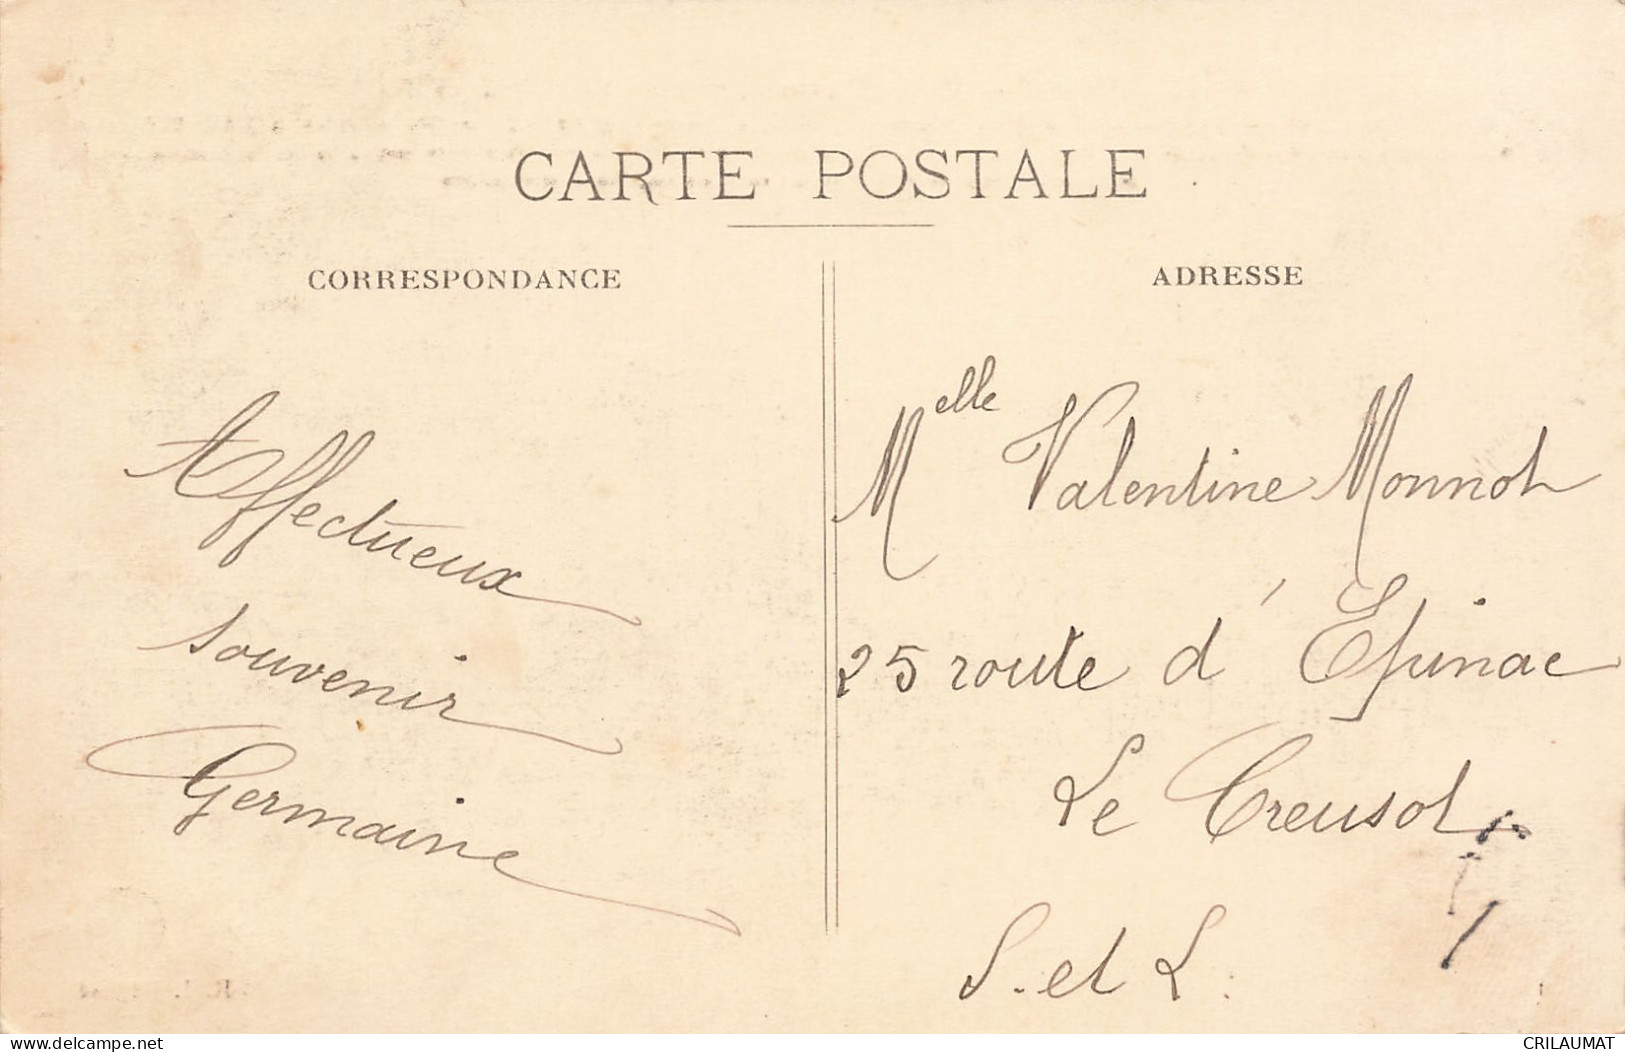 CARTE POSTALE
CORRESPONDANCE
ADRESSE
Affectueux
souvenir
Germaine
Melle Valentine Monnot
25 route d'Epinac
Le Creusot
S. et L.
www.delcampe.net
CRILAUMAT